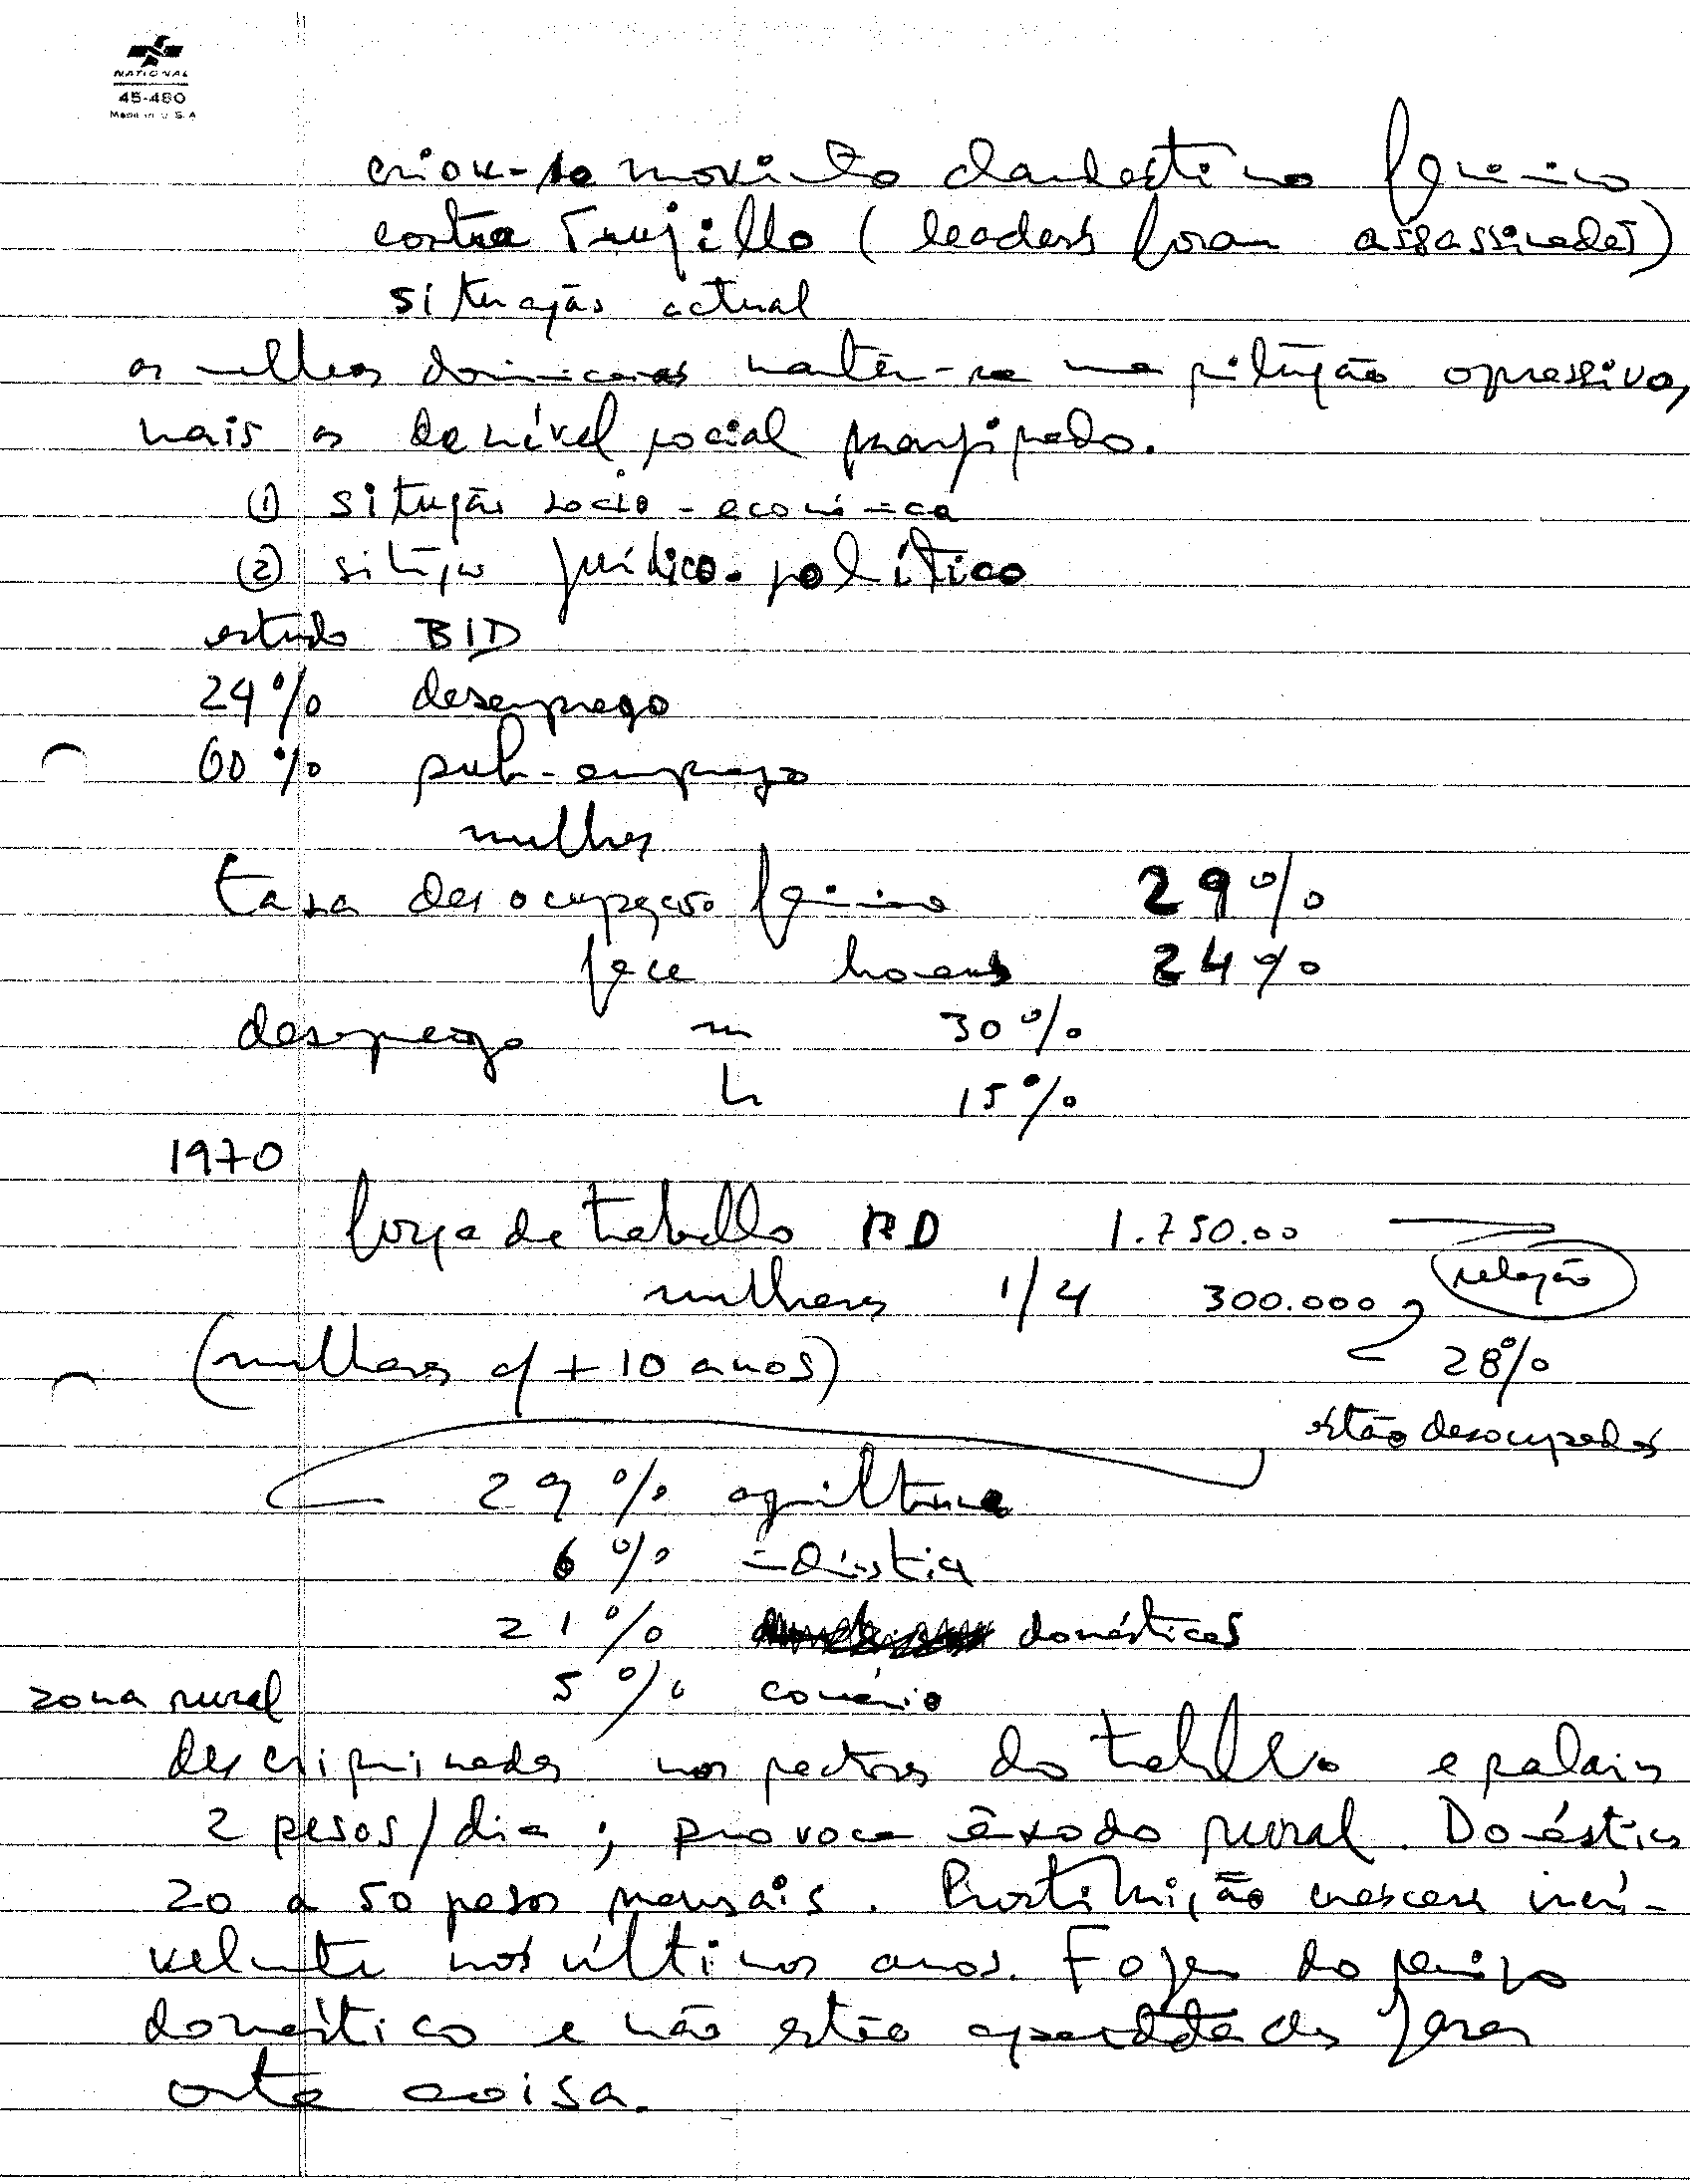 NATIONAL
45-480
Made in U.S.A
criou-se movimento clandestino feminino
contra Trujillo (leaders foram assassinadas)
situação actual
as mulheres dominicanas mantêm-se numa situação opressiva,
mais as de nível social
① situação socio-económica
② situação jurídico-político
estudo BID
24% desemprego
60% sub-emprego
mulheres
taxa desocupação feminina 29%
face homens 24%
desemprego m 30%
h 15%
1970
força de trabalho RD 1.750.00
mulheres 1/4 300.000 relação
(mulheres c/ + 10 anos) 28%
estão desocupadas
29% agricultura
6% indústria
21% domésticas
zona rural 5% comércio
descriminadas nos sectores do trabalho e salários
2 pesos/dia; provoca êxodo rural. Doméstica
20 a 50 pesos mensais. Prostituição cresceu incri-
velmente nos últimos anos. Fogem do serviço
doméstico e não estão para fazer
outra coisa.